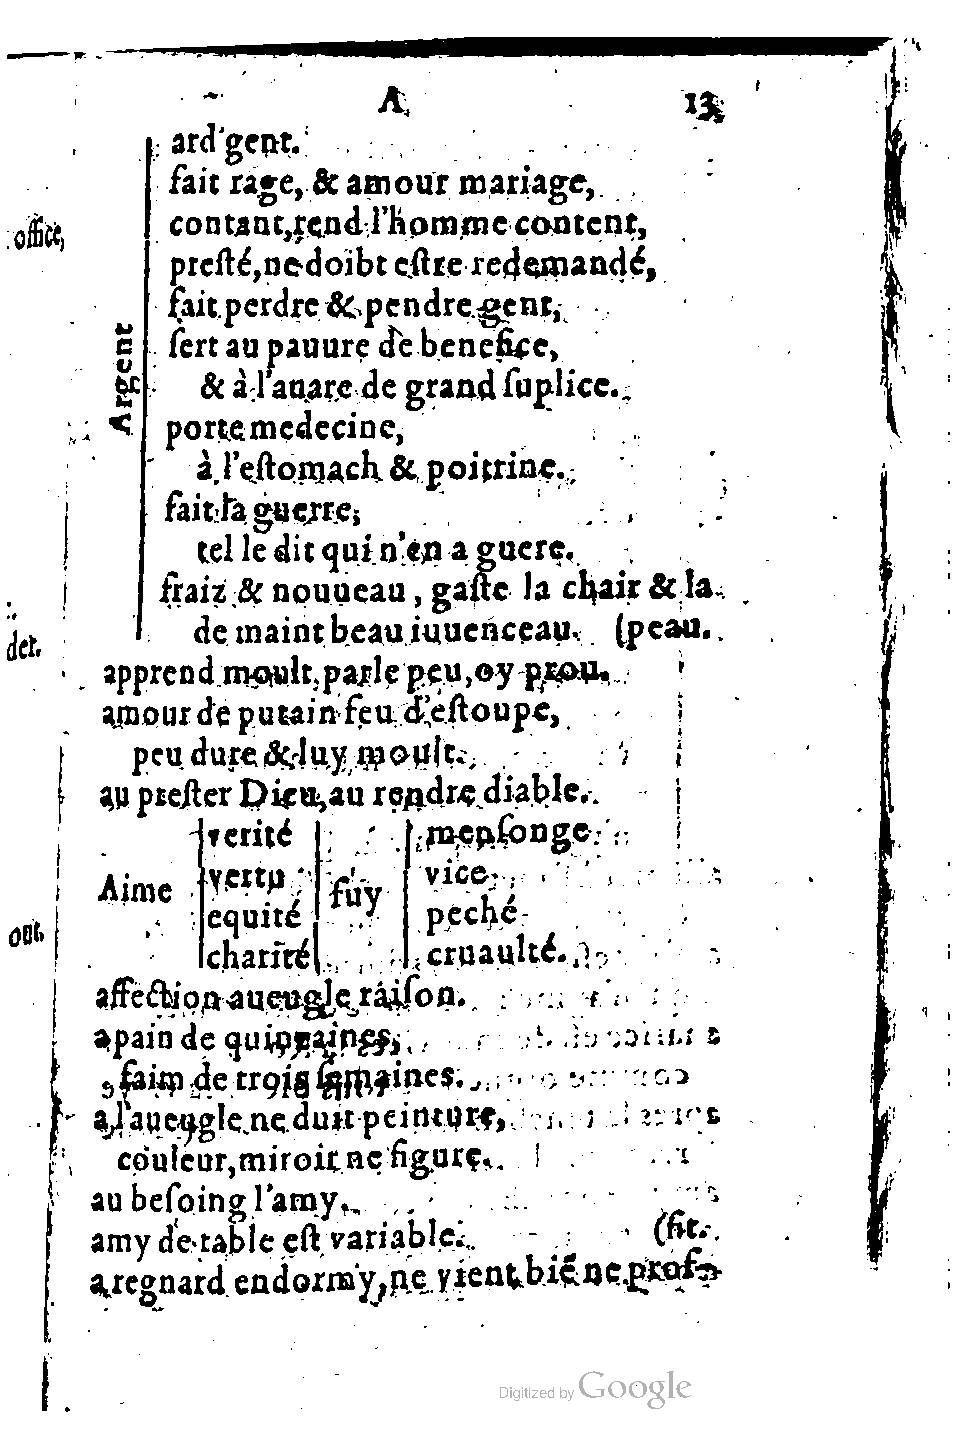 A 13
ard gent.
fait rage, & amour mariage,
contant, rend l'homme content,
presté, ne doibt estre redemandé,
fait perdre & pendre gent,
office,
Argent
sert au pauure de benefice,
& à l'auare de grand suplice.
porte medecine,
à l'estomach & poitrine.
fait la guerre,
tel le dit qui n'en a guere.
fraiz & nouueau, gaste la chair & la
de maint beau iuuenceau. (peau.
der.
apprend moult, parle peu, oy prou.
amour de putain feu d'estoupe,
peu dure & luy moult.
au prester Dieu, au rendre diable.
Aime
verité
vertu
equité
charité
fuy
mensonge
vice
peché
cruaulté.
affection aueugle raison.
a pain de quinzaines,
faim de trois semaines.
a l'aueugle ne duit peinture,
couleur, miroir ne figure.
au besoing l'amy.
amy de table est variable. (fit.
a regnard endormy, ne vient biē ne prof-
Digitized by Google